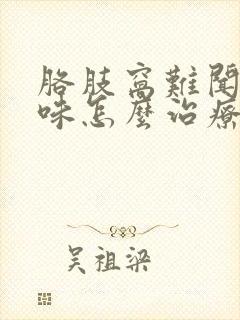 胳肢窩難聞
味怎麼治療
吴祖梁